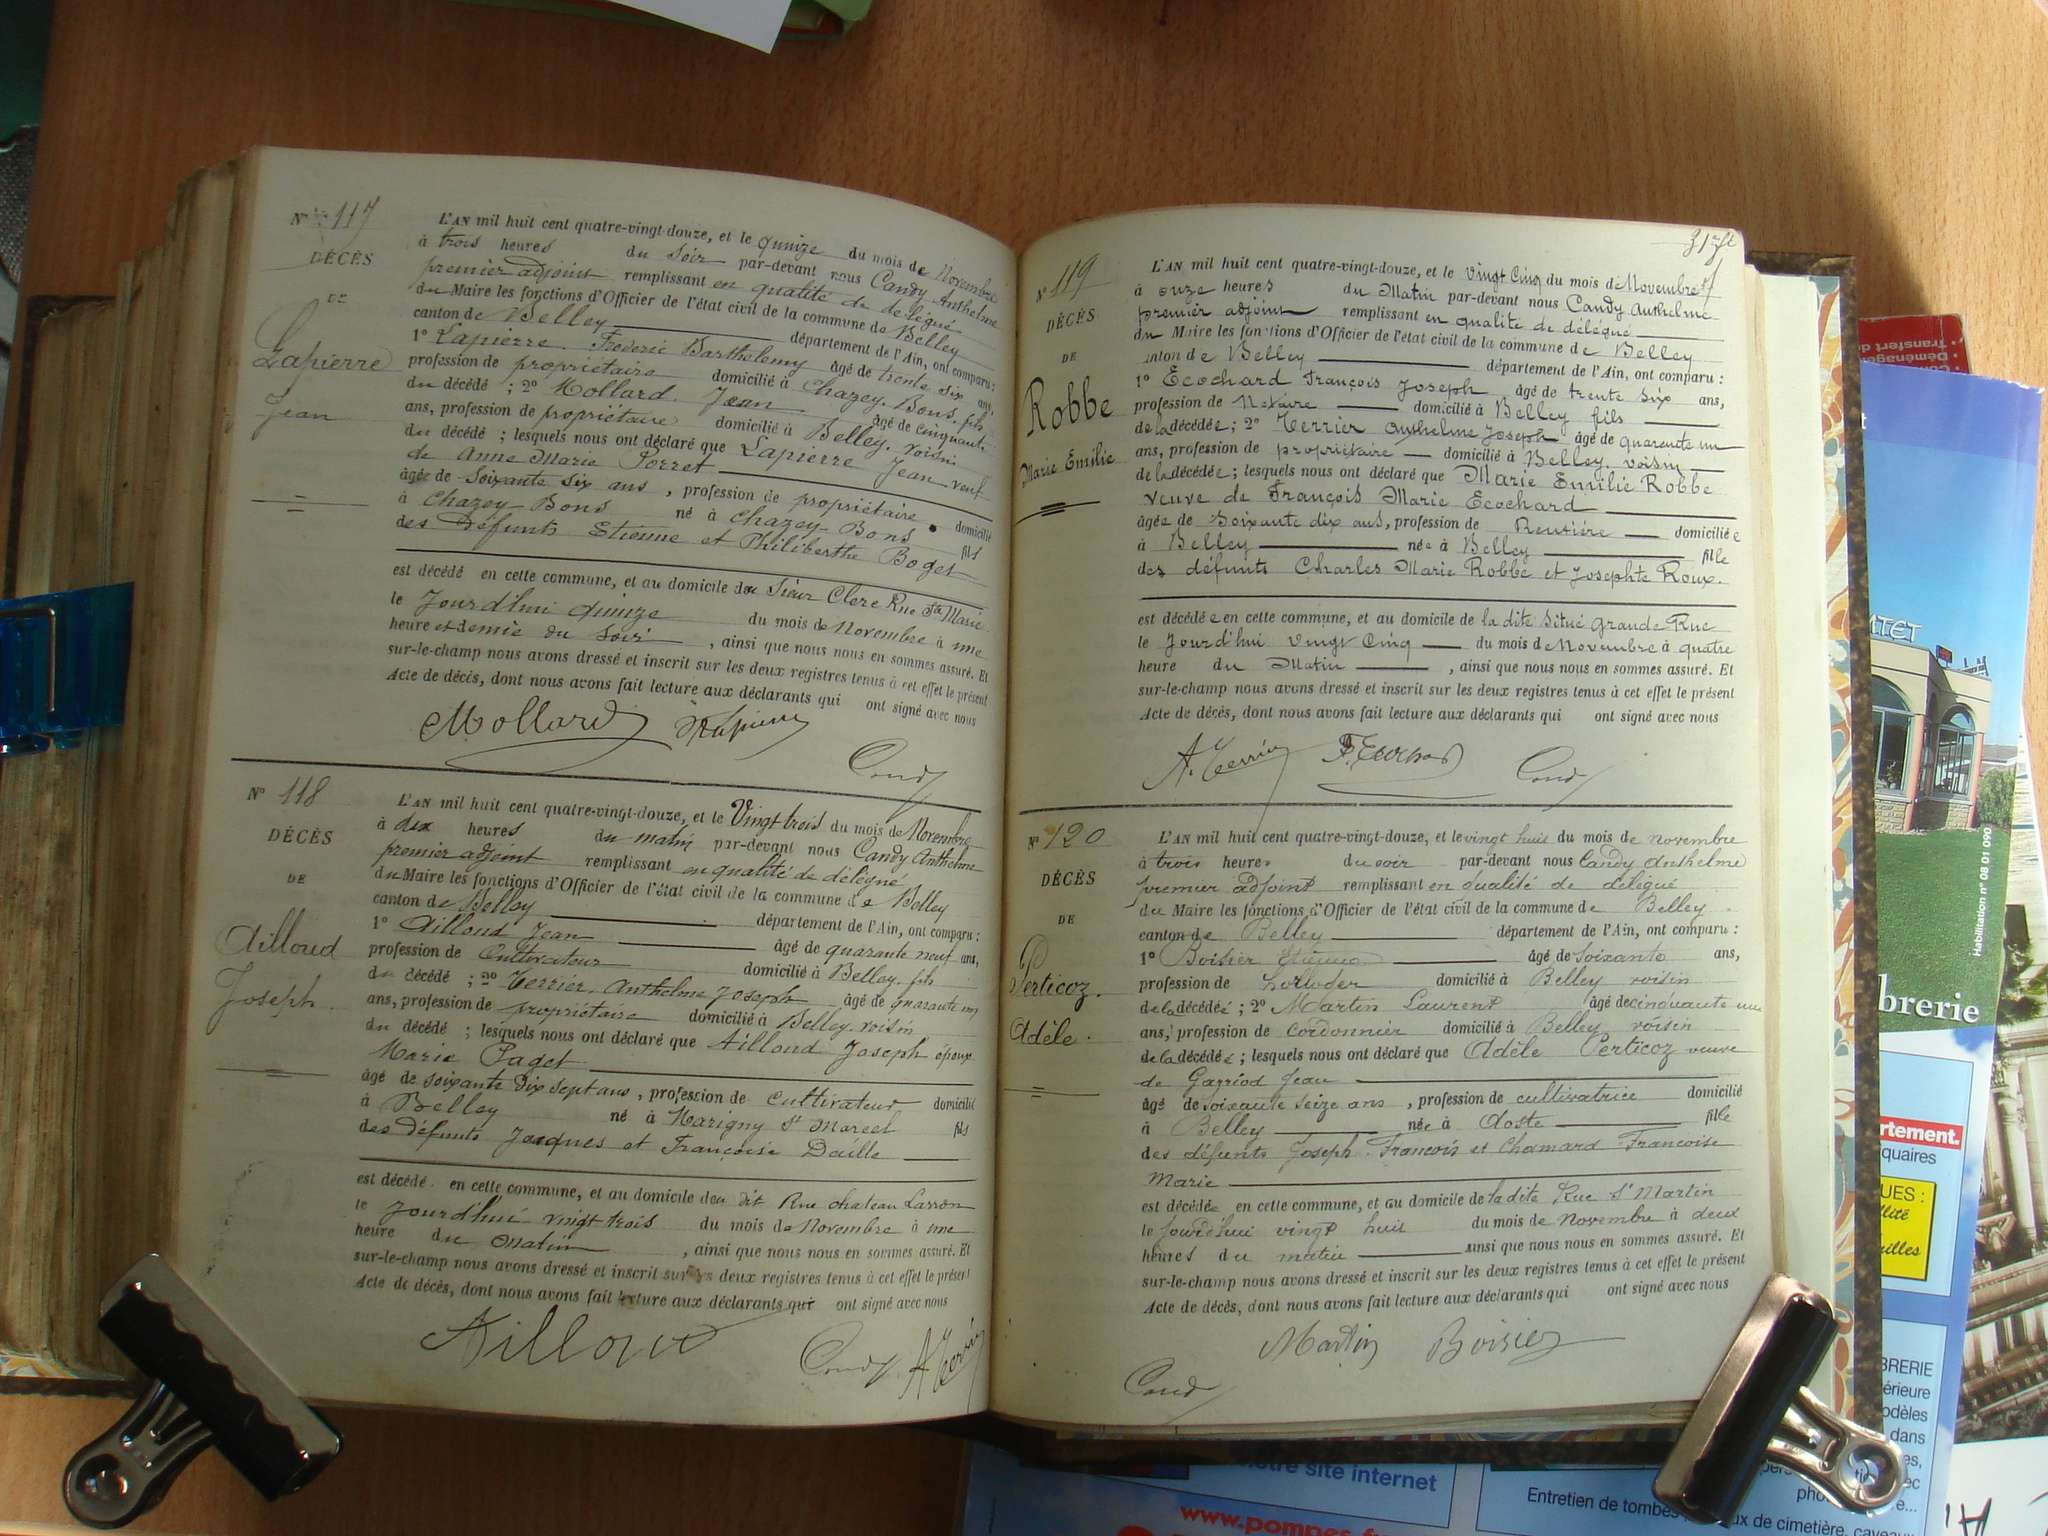 N° 117
DÉCÈS
DE
Lapierre
Jean
L'AN mil huit cent quatre-vingt-douze, et le quinze du mois de Novembre
à trois heures du soir par-devant nous Candy Anthelme
premier adjoint remplissant en qualité de délégué
du Maire les fonctions d'Officier de l'état civil de la commune de Belley
canton de Belley département de l'Ain, ont comparu :
1° Lapierre Frédéric Barthelemy âgé de trente six ans,
profession de propriétaire domicilié à Chazey-Bons, fils
du décédé ; 2° Mollard Jean âgé de cinquante
ans, profession de propriétaire domicilié à Belley, voisin
du décédé ; lesquels nous ont déclaré que Lapierre Jean veuf
de Anne Marie Porret
âgé de soixante six ans, profession de propriétaire domicilié
à Chazey Bons né à Chazey-Bons fils
des défunts Etienne et Philiberthe Boget
est décédé en cette commune, et au domicile du Sieur Clerc Rue Ste Marie
le jourd'hui quinze du mois de Novembre à une
heure et demie du soir, ainsi que nous nous en sommes assuré. Et
sur-le-champ nous avons dressé et inscrit sur les deux registres tenus à cet effet le présent
Acte de décès, dont nous avons fait lecture aux déclarants qui ont signé avec nous
Mollard Lapierre
Candy
N° 118
DÉCÈS
DE
Ailloud
Joseph
L'AN mil huit cent quatre-vingt-douze, et le Vingt trois du mois de Novembre
à dix heures du matin par-devant nous Candy Anthelme
premier adjoint remplissant en qualité de délégué
du Maire les fonctions d'Officier de l'état civil de la commune de Belley
canton de Belley département de l'Ain, ont comparu :
1° Ailloud Jean âgé de quarante neuf ans,
profession de Cultivateur domicilié à Belley, fils
du décédé ; 2° Terrier, Anthelme Joseph âgé de quarante un
ans, profession de propriétaire domicilié à Belley, voisin
du décédé ; lesquels nous ont déclaré que Ailloud Joseph époux
Marie Paget
âgé de soixante dix sept ans, profession de cultivateur domicilié
à Belley né à Marigny St Marcel fils
des défunts Jacques et Françoise Daille
est décédé en cette commune, et au domicile du dit Rue chateau Larron
le jourd'hui vingt trois du mois de Novembre à une
heure du Matin, ainsi que nous nous en sommes assuré. Et
sur-le-champ nous avons dressé et inscrit sur les deux registres tenus à cet effet le présent
Acte de décès, dont nous avons fait lecture aux déclarants qui ont signé avec nous
Ailloud
Candy A. Terrier
N° 119
DÉCÈS
DE
Robbe
Marie Emilie
L'AN mil huit cent quatre-vingt-douze, et le vingt Cinq du mois de Novembre
à onze heures du Matin par-devant nous Candy Anthelme
premier adjoint remplissant en qualité de délégué
du Maire les fonctions d'Officier de l'état civil de la commune de Belley
canton de Belley département de l'Ain, ont comparu :
1° Ecochard François Joseph âgé de trente six ans,
profession de Notaire domicilié à Belley fils
de la décédée ; 2° Terrier Anthelme Joseph âgé de quarente un
ans, profession de propriétaire domicilié à Belley, voisin
de la décédée ; lesquels nous ont déclaré que Marie Emilie Robbe
veuve de François Marie Ecochard
âgée de soixante dix ans, profession de Rentière domiciliée
à Belley née à Belley fille
des défunts Charles Marie Robbe et Josephte Roux.
est décédée en cette commune, et au domicile de la dite situé Grande Rue
le jourd'hui vingt cinq du mois de Novembre à quatre
heure du Matin, ainsi que nous nous en sommes assuré. Et
sur-le-champ nous avons dressé et inscrit sur les deux registres tenus à cet effet le présent
Acte de décès, dont nous avons fait lecture aux déclarants qui ont signé avec nous
A. Terrier F. Ecochard Candy
N° 120
DÉCÈS
DE
Perticoz.
Adèle.
L'AN mil huit cent quatre-vingt-douze, et le vingt huit du mois de novembre
à trois heures du soir par-devant nous Candy Anthelme
premier adjoint remplissant en qualité de délégué
du Maire les fonctions d'Officier de l'état civil de la commune de Belley
canton de Belley département de l'Ain, ont comparu :
1° Boisier Etienne âgé de soixante ans,
profession de domicilié à Belley voisin
de la décédée ; 2° Martin Laurent âgé de cinquante un
ans, profession de cordonnier domicilié à Belley voisin
de la décédée ; lesquels nous ont déclaré que Adèle Perticoz veuve
de Garriod Jean
âgé de soixante seize ans, profession de cultivatrice domicilié
à Belley née à Aoste fille
des défunts Joseph François et Chamard Francoise
Marie
est décédée en cette commune, et au domicile de la dite Rue St Martin
le jourd'hui vingt huit du mois de novembre à deux
heures du matin ainsi que nous nous en sommes assuré. Et
sur-le-champ nous avons dressé et inscrit sur les deux registres tenus à cet effet le présent
Acte de décès, dont nous avons fait lecture aux déclarants qui ont signé avec nous
Martin Boisier
Candy
Habilitation n° 08 01 090
brerie
rtement.
quaires
UES :
BRERIE
érieure
odèles
dans
notre site internet
www.pompes
Entretien de tombes
de cimetière, caveaux